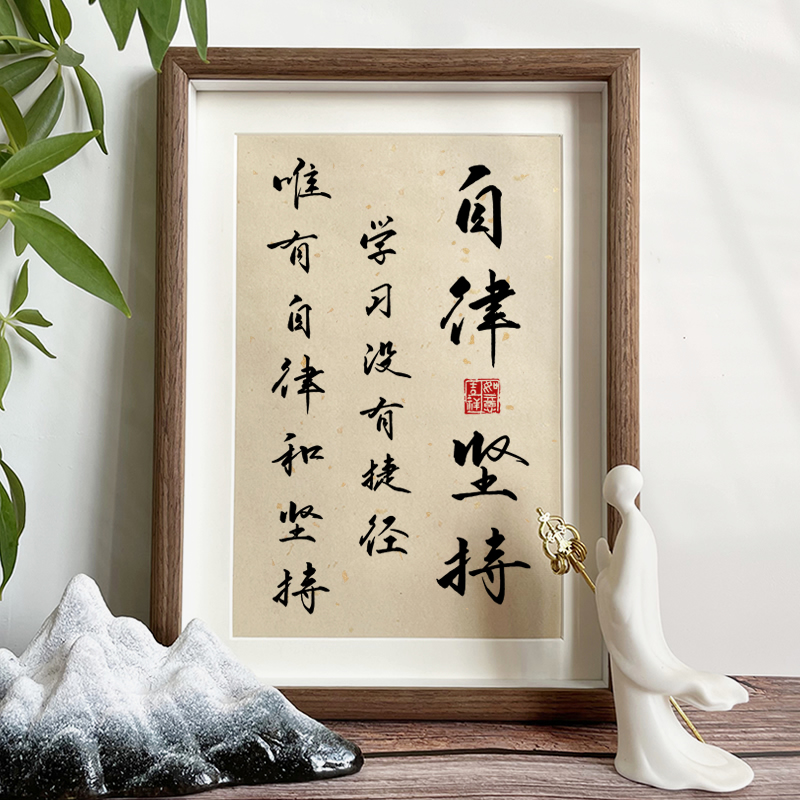 自律
如意吉祥
坚持
学习没有捷径
唯有自律和坚持